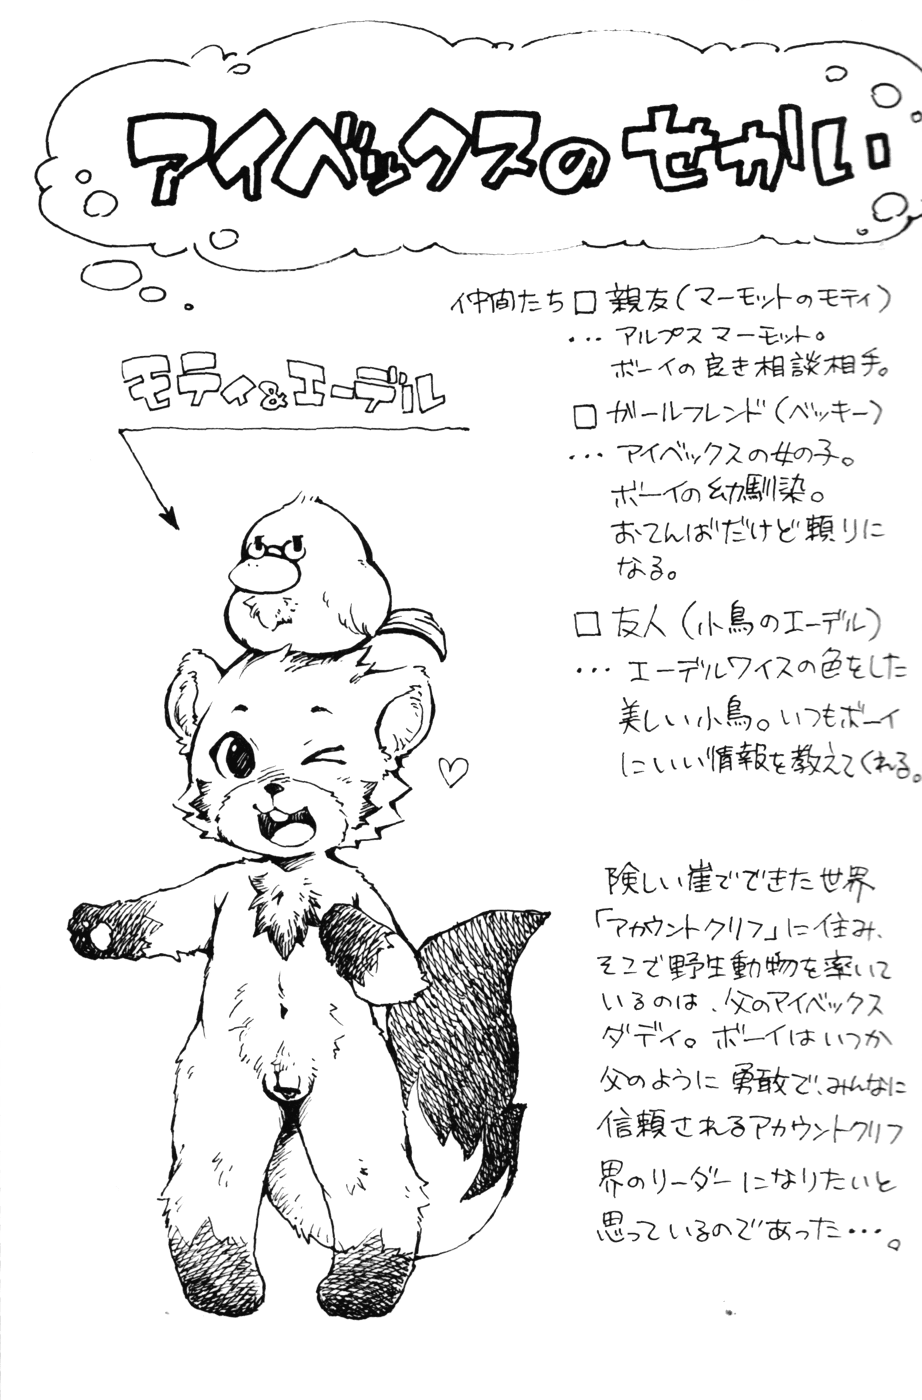 アイベックスのせかい
仲間たち□ 親友(マーモットのモティ)
… アルプスマーモット。
ボーイの良き相談相手。
□ ガールフレンド(ベッキー)
… アイベックスの女の子。
ボーイの幼馴染。
おてんばだけど頼りに
なる。
□ 友人(小鳥のエーデル)
… エーデルワイスの色をした
美しい小鳥。いつもボーイ
にいい情報を教えてくれる。
モティ&エーデル
険しい崖でできた世界
「アカウントクリフ」に住み、
そこで野生動物を率いて
いるのは、父のアイベックス
ダディ。ボーイはいつか
父のように勇敢で、みんなに
信頼されるアカウントクリフ
界のリーダーになりたいと
思っているのであった…。